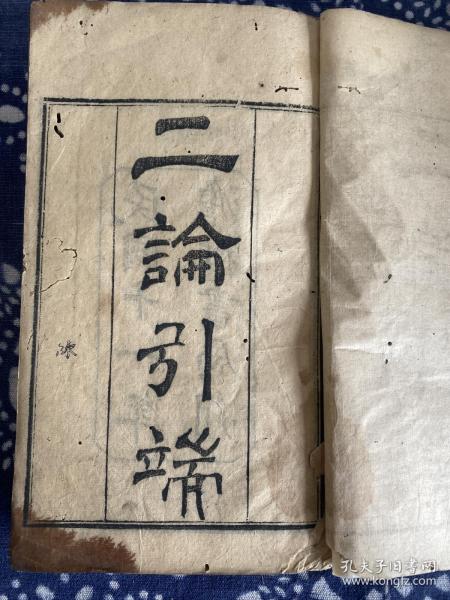 二論引端
孔夫子旧书网
www.kongfz.com